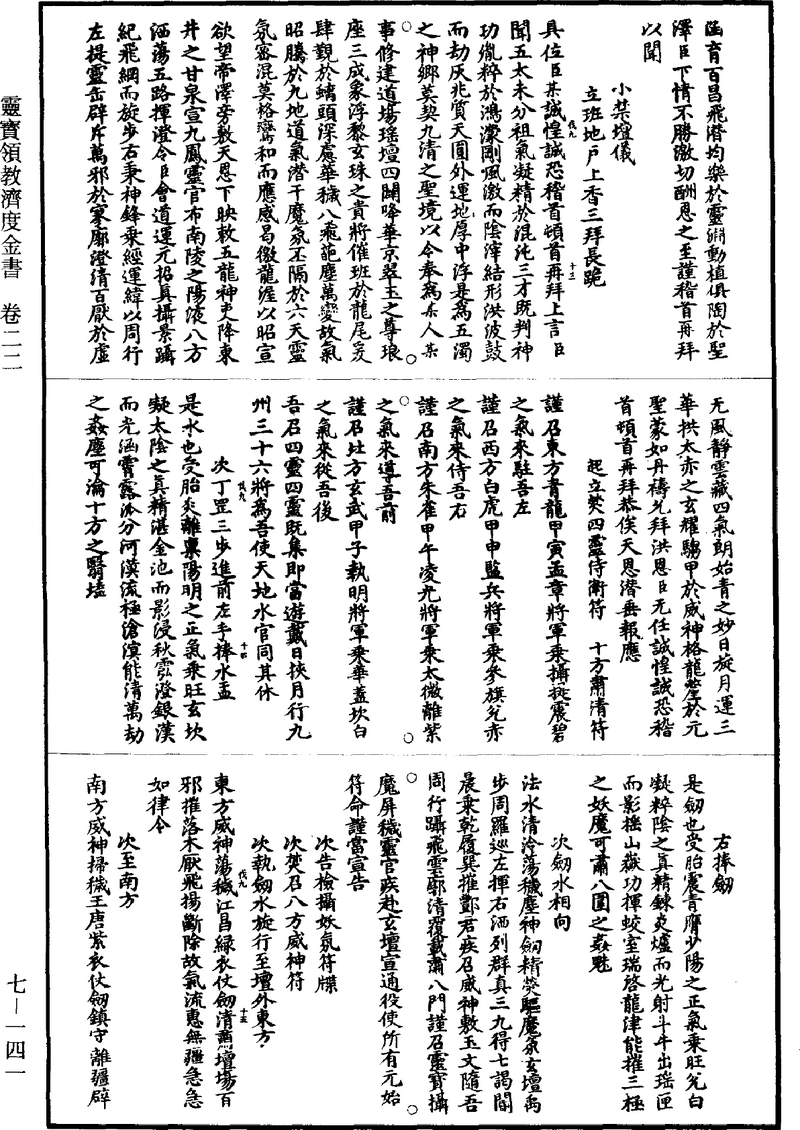 靈寶領教濟度金書　卷二二
七－一四一
涵育百昌飛潛均樂於靈淵動植俱陶於聖
澤臣下情不勝激切酬恩之至謹稽首再拜
以聞
小禁壇儀
立班地戶上香三拜長跪
具位臣某誠惶誠恐稽首頓首再拜上言臣
聞五太未分祖氣凝精於混沌三才既判神
功胤粹於鴻濛剛風激而陰滓結形洪波鼓
而劫灰兆質天圓外運地厚中浮是為五濁
之神鄉莫契九清之聖境以今奉為某人某
事修建道場瑤壇四闢降華京翠玉之尊琅
座三成象浮黎玄珠之貴將催班於龍尾爰
肆覲於螭頭深慮華穢八飛葩塵萬變故氣
昭騰於九地道氣潛干魔氛丕隔於六天靈
氛密混莫格鸞和而應感曷徼龍渥以昭宣
欲望帝澤旁敷天恩下映敕五龍神吏降東
井之甘泉宣九鳳靈官布南陵之陽液八方
洒蕩五路揮澄令臣會道運元招真攝景躡
紀飛綱而旋步右秉神鋒乘經運緯以周行
左提靈缶辟斥萬邪於寥廓澄清百厭於虛
无風靜雲藏四氣朗始青之妙日旋月運三
華拱太赤之玄耀騶甲於威神格龍於元
聖蒙如丹禱允拜洪恩臣无任誠惶誠恐稽
首頓首再拜恭俟天恩潛垂報應
起立焚四靈侍衛符　十方肅清符
謹召東方青龍甲寅孟章將軍乘攝提震碧
之氣來駐吾左
謹召西方白虎甲申監兵將軍乘參旗兌赤
之氣來侍吾右
謹召南方朱雀甲午凌光將軍乘太微離紫
之氣來導吾前
謹召北方玄武甲子執明將軍乘華蓋坎白
之氣來從吾後
吾召四靈四靈既集即當遊戴日挾月行九
州三十六將為吾使天地水官同其休
次丁罡三步進前左手捧水盂
是水也受胎炎離稟陽明之正氣乘旺玄坎
凝太陰之真精湛金池而影浸秋雲澄銀漢
而光涵霄露派分河漠流極滄溟能清萬劫
之姦塵可瀹十方之翳壒
右捧劒
是劒也受胎震青膺少陽之正氣乘旺兌白
凝粹陰之真精鍊炎爐而光射斗牛出瑶匣
而影搖山嶽功揮蛟室瑞啓龍津能摧三極
之妖魔可肅八圍之姦魅
次劒水相向
法水清泠蕩穢塵神劒精熒驅魔氛玄壇禹
步周羅巡左揮右洒列群真三九得七謁閶
晨乘乾履巽摧酆君疾召威神敷玉文隨吾
周行躡飛雲廓清覆載肅八門謹召靈寶攝
魔屏穢靈官疾赴玄壇宣通役使所有元始
符命謹當宣告
次告檢攝妖氛符牒
次焚召八方威神符
次執劒水旋行至壇外東方
東方威神蕩穢江昌綠衣仗劒清肅壇場百
邪摧落木厭飛揚斷除故氣流惠無疆急急
如律令
次至南方
南方威神掃穢王唐紫衣仗劒鎮守離疆辟